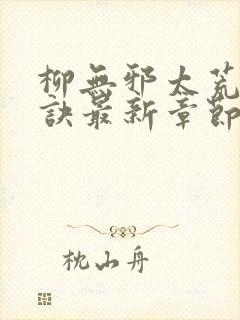 柳無邪太荒
訣最新章節
枕山舟